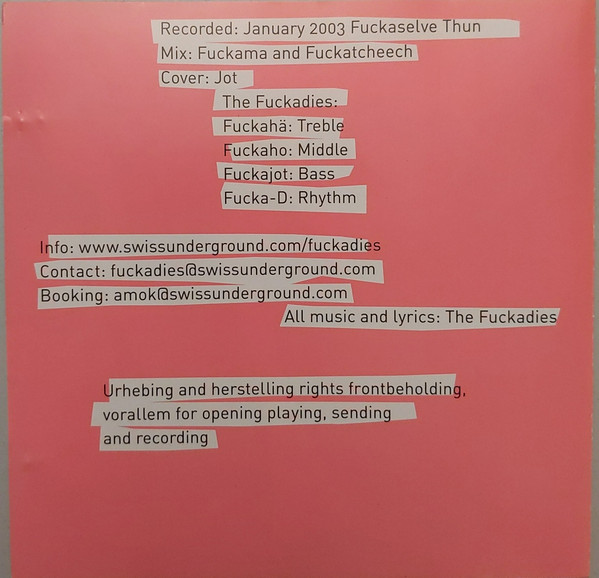 Recorded: January 2003 Fuckaselve Thun
Mix: Fuckama and Fuckatcheech
Cover: Jot
The Fuckadies:
Fuckahä: Treble
Fuckaho: Middle
Fuckajot: Bass
Fucka-D: Rhythm
Info: www.swissunderground.com/fuckadies
Contact: fuckadies@swissunderground.com
Booking: amok@swissunderground.com
All music and lyrics: The Fuckadies
Urhebing and herstelling rights frontbeholding,
vorallem for opening playing, sending
and recording